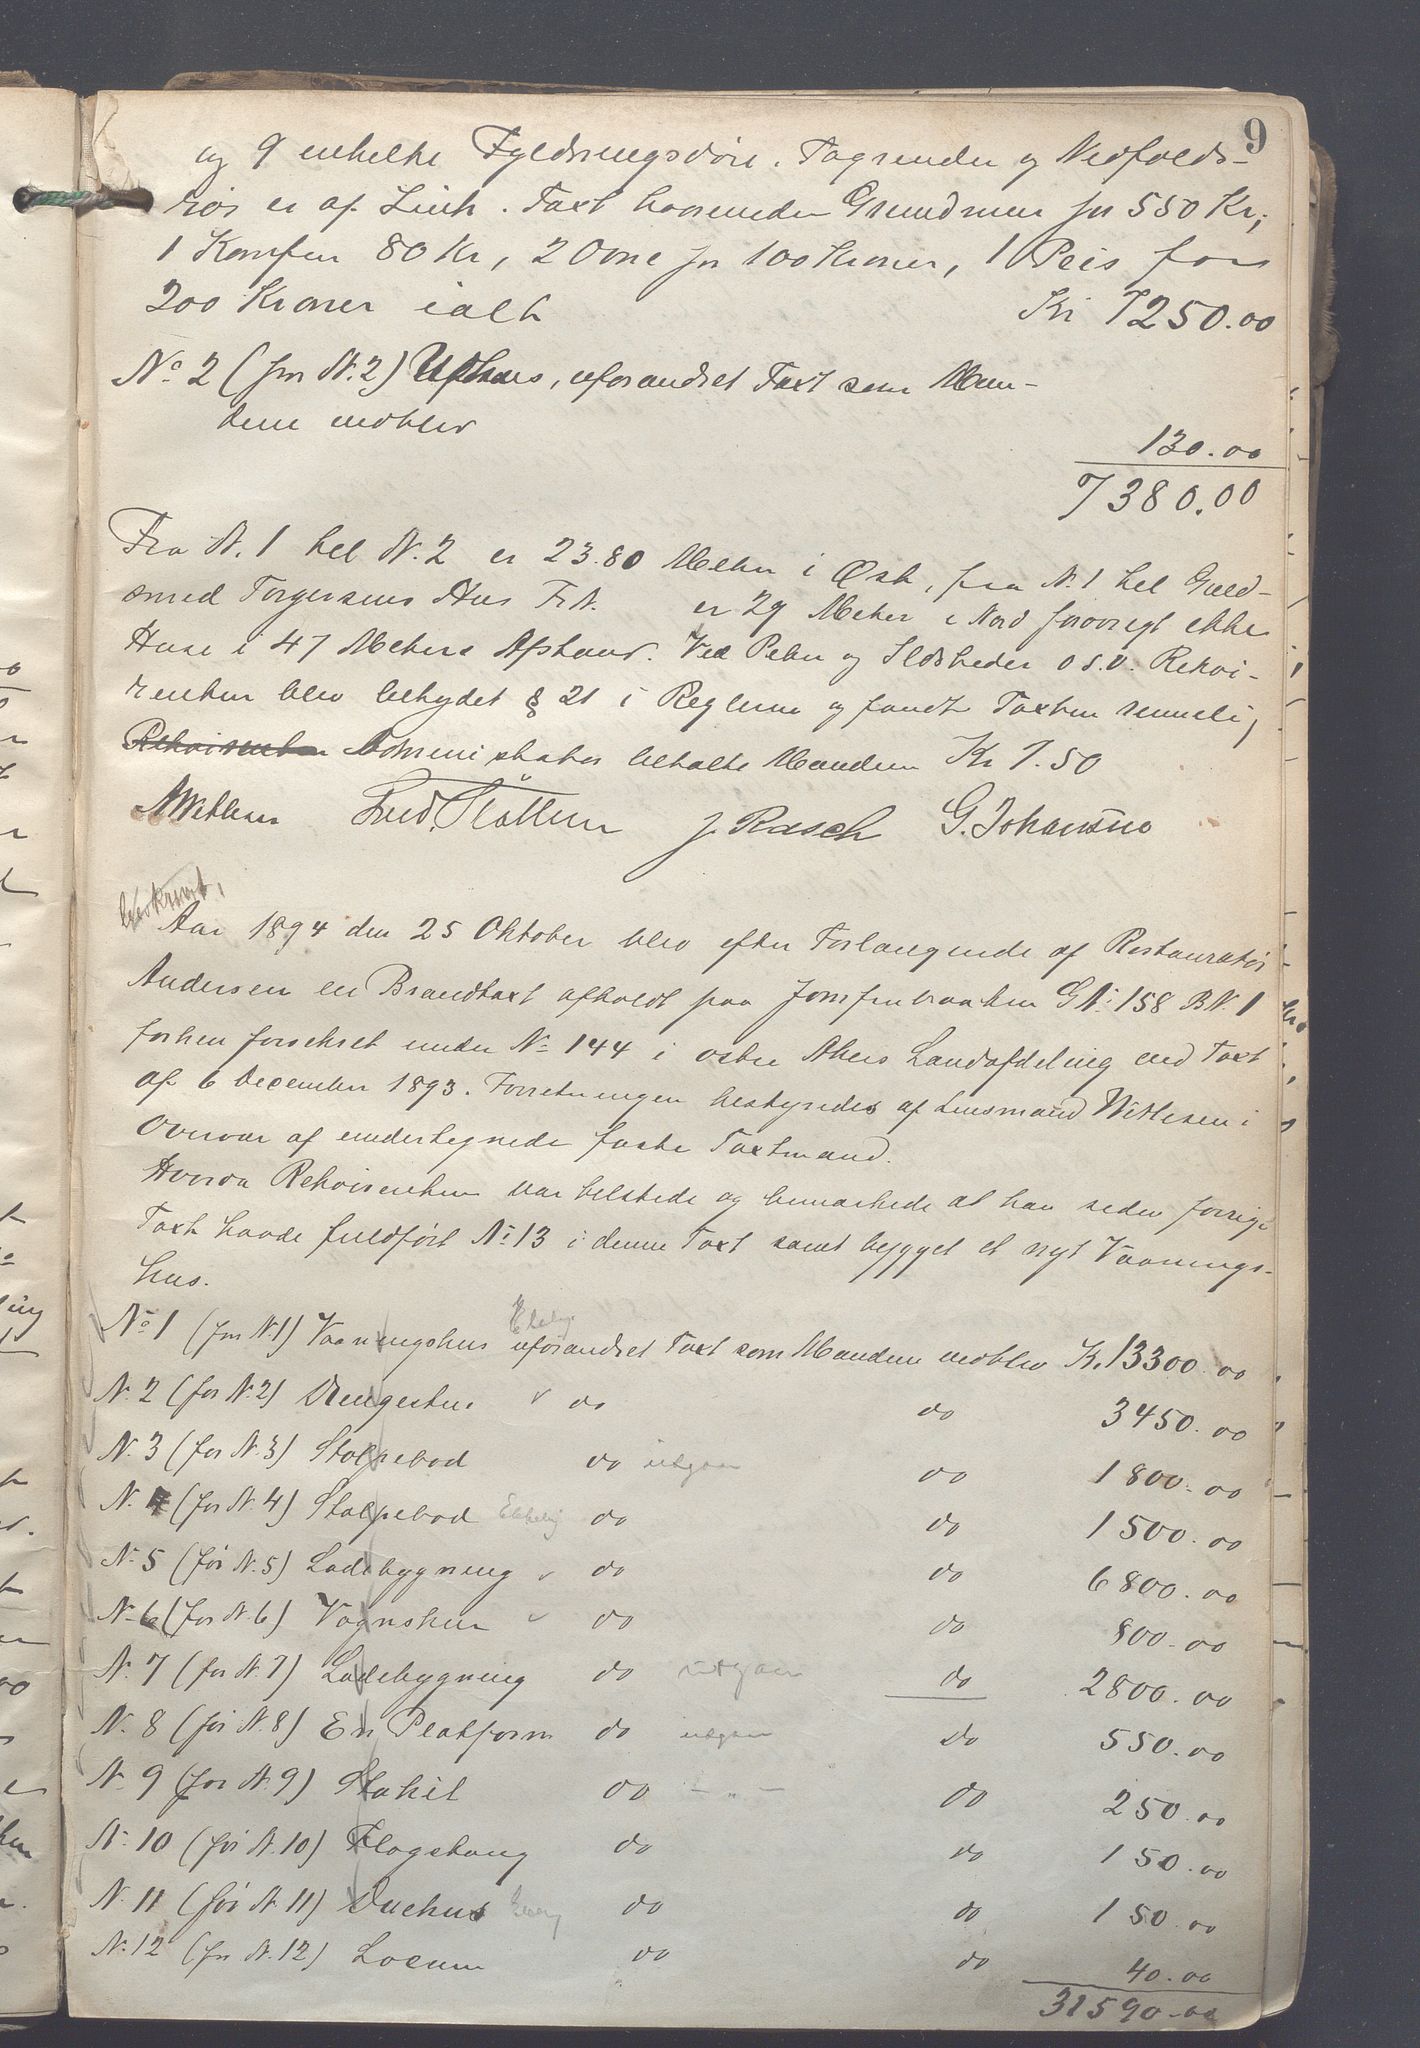 9
og 9 enkelte Fyldningsdøre. Tagrender og Nedfalds-
rør er af Zink. Taxt hovseneden Grundmur for 550 Kr,
1 Komfur 80 Kr, 2 Ovne for 100 Kroner, 1 Peis for
200 Kroner ialt Kr 7250.00
No 2 (før N. 2) Udhus, uforandret Taxt som Mæn-
dene vedblev
130.00
7380.00
Fra N. 1 til N. 2 er 23.80 Meter i Øst, fra N. 1 til Guld-
smed Torgersens Hus F.N. er 29 Meter i Nord forøvrigt ikke
Huse i 47 Meters Afstand. Ved Peber og Ildsteder o s.v. Rekvi-
renten blev betydet § 21 i Reglerne og fandt Taxten rimelig
Rekvirenten Administrator betalte Mændene Kr 7.50
AWetlesen Fred. Slåtten J. Rasch G. Johansen
Aar 1894 den 25 Oktober blev efter Forlangende af Restauratør
Andersen en Brandtaxt afholdt paa Jomfrubraaten G N: 158 B N. 1
forhen forsikret under No 144 i østre Akers Landafdeling ved Taxt
af 6 December 1893. Forretningen bestyredes af Lensmand Wetlesen i
Overvær af undertegnede faste Taxtmænd.
Hvorda Rekvirenten var tilstede og bemærkede at han siden forrige
Taxt havde fuldført No 13 i denne Taxt samt bygget et nyt Vaanings-
hus.
No 1 (før N. 1) Vaaningshus uforandret Taxt som Mændene vedblev Kr. 13300.00
N. 2 (før N. 2) Drengestue v do do 3450.00
N. 3 (før N. 3) Stolpebod do utgaar do 1800.00
N. 4 (før N. 4) Stolpebod do do 1500.00
N. 5 (før N. 5) Ladebygning v do do 6800.00
N. 6 (før N. 6) Vognskur v do do 800.00
N. 7 (før N. 7) Ladebygning do utgaar do 2800.00
N. 8 (før N. 8) En Platform do utgaar do 550.00
N. 9 (før N. 9) Stakit do - " - do 250.00
N. 10 (før N. 10) Flagstang do do 150.00
N. 11 (før N. 11) Duehus do do 150.00
N. 12 (før N. 12) Locum do do 40.00
31590.00